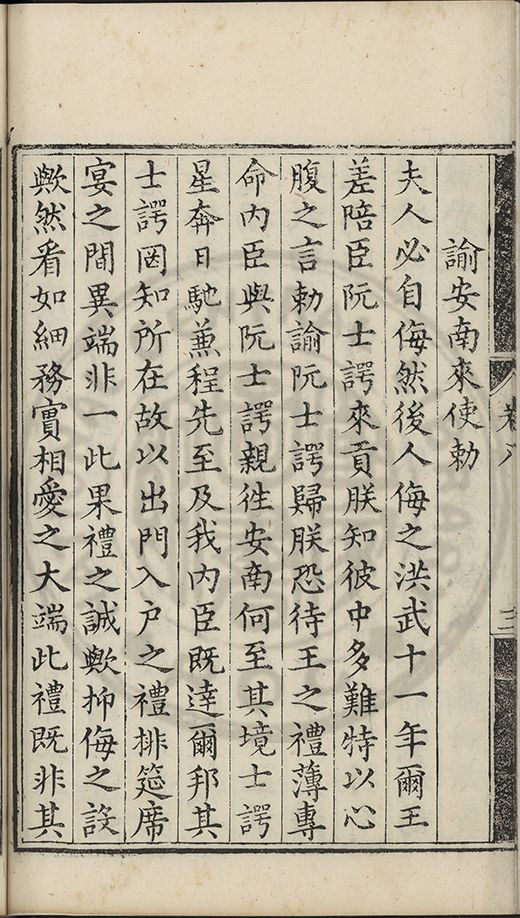 諭安南來使勅
夫人必自侮然後人侮之洪武十一年爾王
差陪臣阮士諤來貢朕知彼中多難特以心
腹之言勅諭阮士諤歸朕恐待王之禮薄專
命內臣與阮士諤親徃安南何至其境士諤
星奔日馳兼程先至及我內臣既達爾邦其
士諤罔知所在故以出門入户之禮排筵席
宴之間異端非一此果禮之誠歟抑侮之設
歟然看如細務實相愛之大端此禮既非其
卷八
三